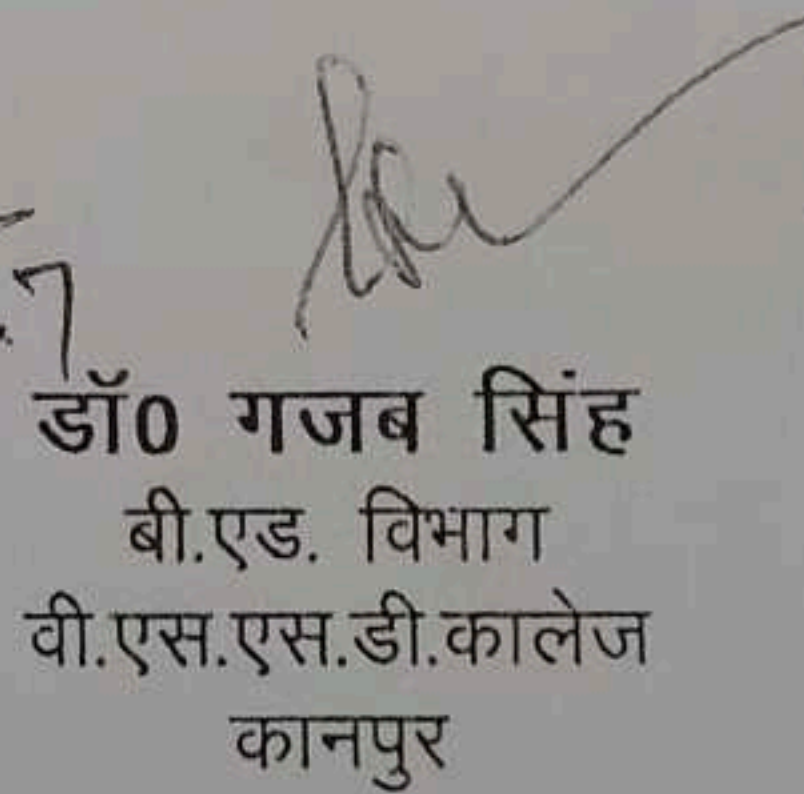 डॉ0 गजब सिंह
बी.एड. विभाग
वी.एस.एस.डी.कालेज
कानपुर